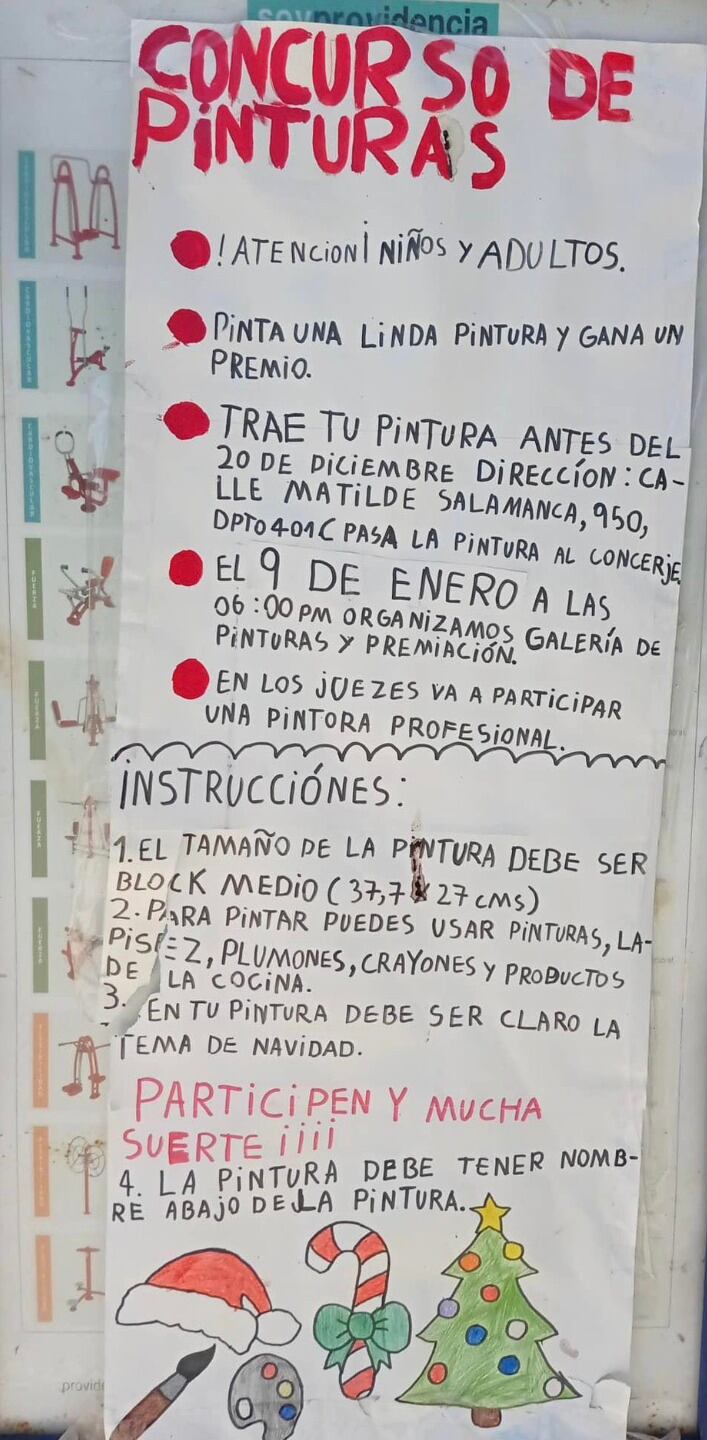 soyprovidencia
CONCURSO DE
PINTURAS
! ATENCION¡ NIÑOS Y ADULTOS.
PINTA UNA LINDA PINTURA Y GANA UN
PREMIO.
TRAE TU PINTURA ANTES DEL
20 DE DICIEMBRE DIRECCÍON: CA-
LLE MATILDE SALAMANCA, 950,
DPTO 401C PASA LA PINTURA AL CONCERJE
EL 9 DE ENERO A LAS
06:00 PM ORGANIZAMOS GALERÍA DE
PINTURAS Y PREMIACIÓN.
EN LOS JUEZES VA A PARTICIPAR
UNA PINTORA PROFESIONAL.
INSTRUCCIÓNES:
1. EL TAMAÑO DE LA PINTURA DEBE SER
BLOCK MEDIO (37,7 x 27 cms)
2. PARA PINTAR PUEDES USAR PINTURAS, LA-
PISEZ, PLUMONES, CRAYONES Y PRODUCTOS
DE LA COCINA.
3. EN TU PINTURA DEBE SER CLARO LA
TEMA DE NAVIDAD.
PARTICIPEN Y MUCHA
SUERTE ¡¡¡¡
4. LA PINTURA DEBE TENER NOMB-
RE ABAJO DE LA PINTURA.
CARDIOVASCULAR
CARDIOVASCULAR
FUERZA
FUERZA
FUERZA
FUERZA
.provide